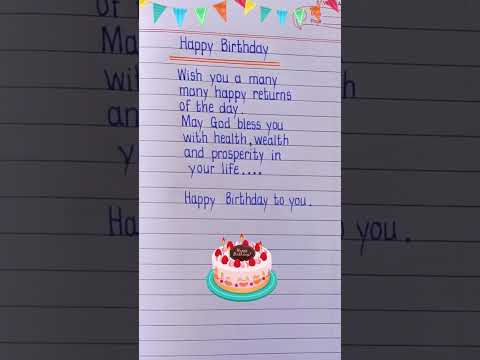 Happy Birthday
Wish you a many
many happy returns
of the day.
May God bless you
with health, wealth
and prosperity in
your life....
Happy Birthday to you.